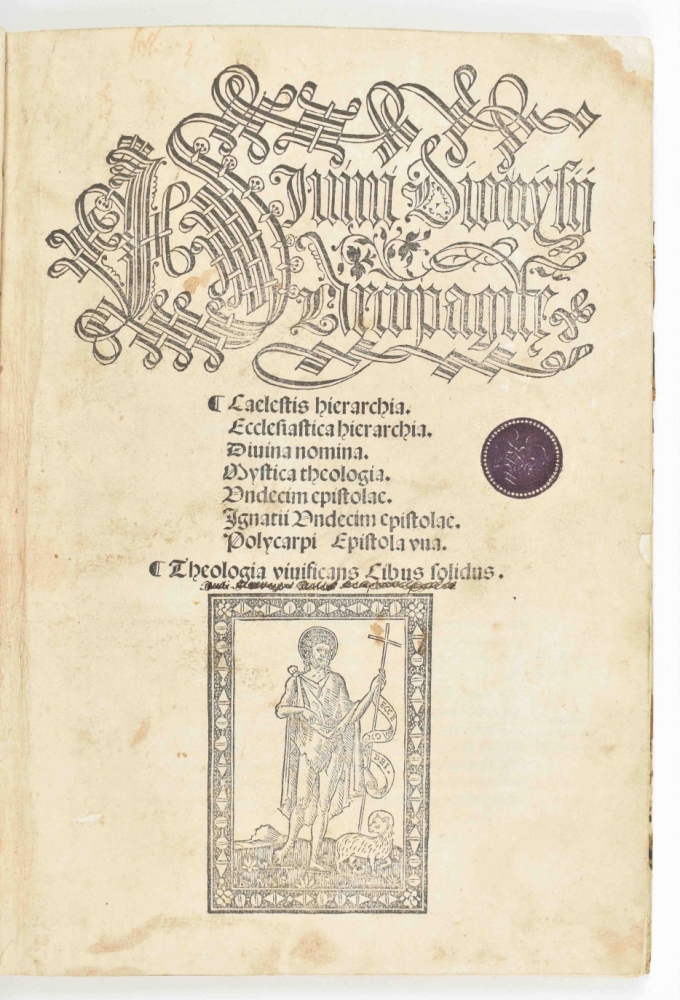 Diuini Dionysij
Areopagite
¶ Caelestis hierarchia.
Ecclesiastica hierarchia.
Diuina nomina.
Mystica theologia.
Undecim epistolae.
Ignatii Undecim epistolae.
Polycarpi Epistola vna.
¶ Theologia viuificans Cibus solidus.
ECCE
DEI.